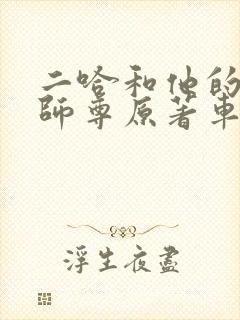 二哈和他的
師尊原著車
浮生夜盡